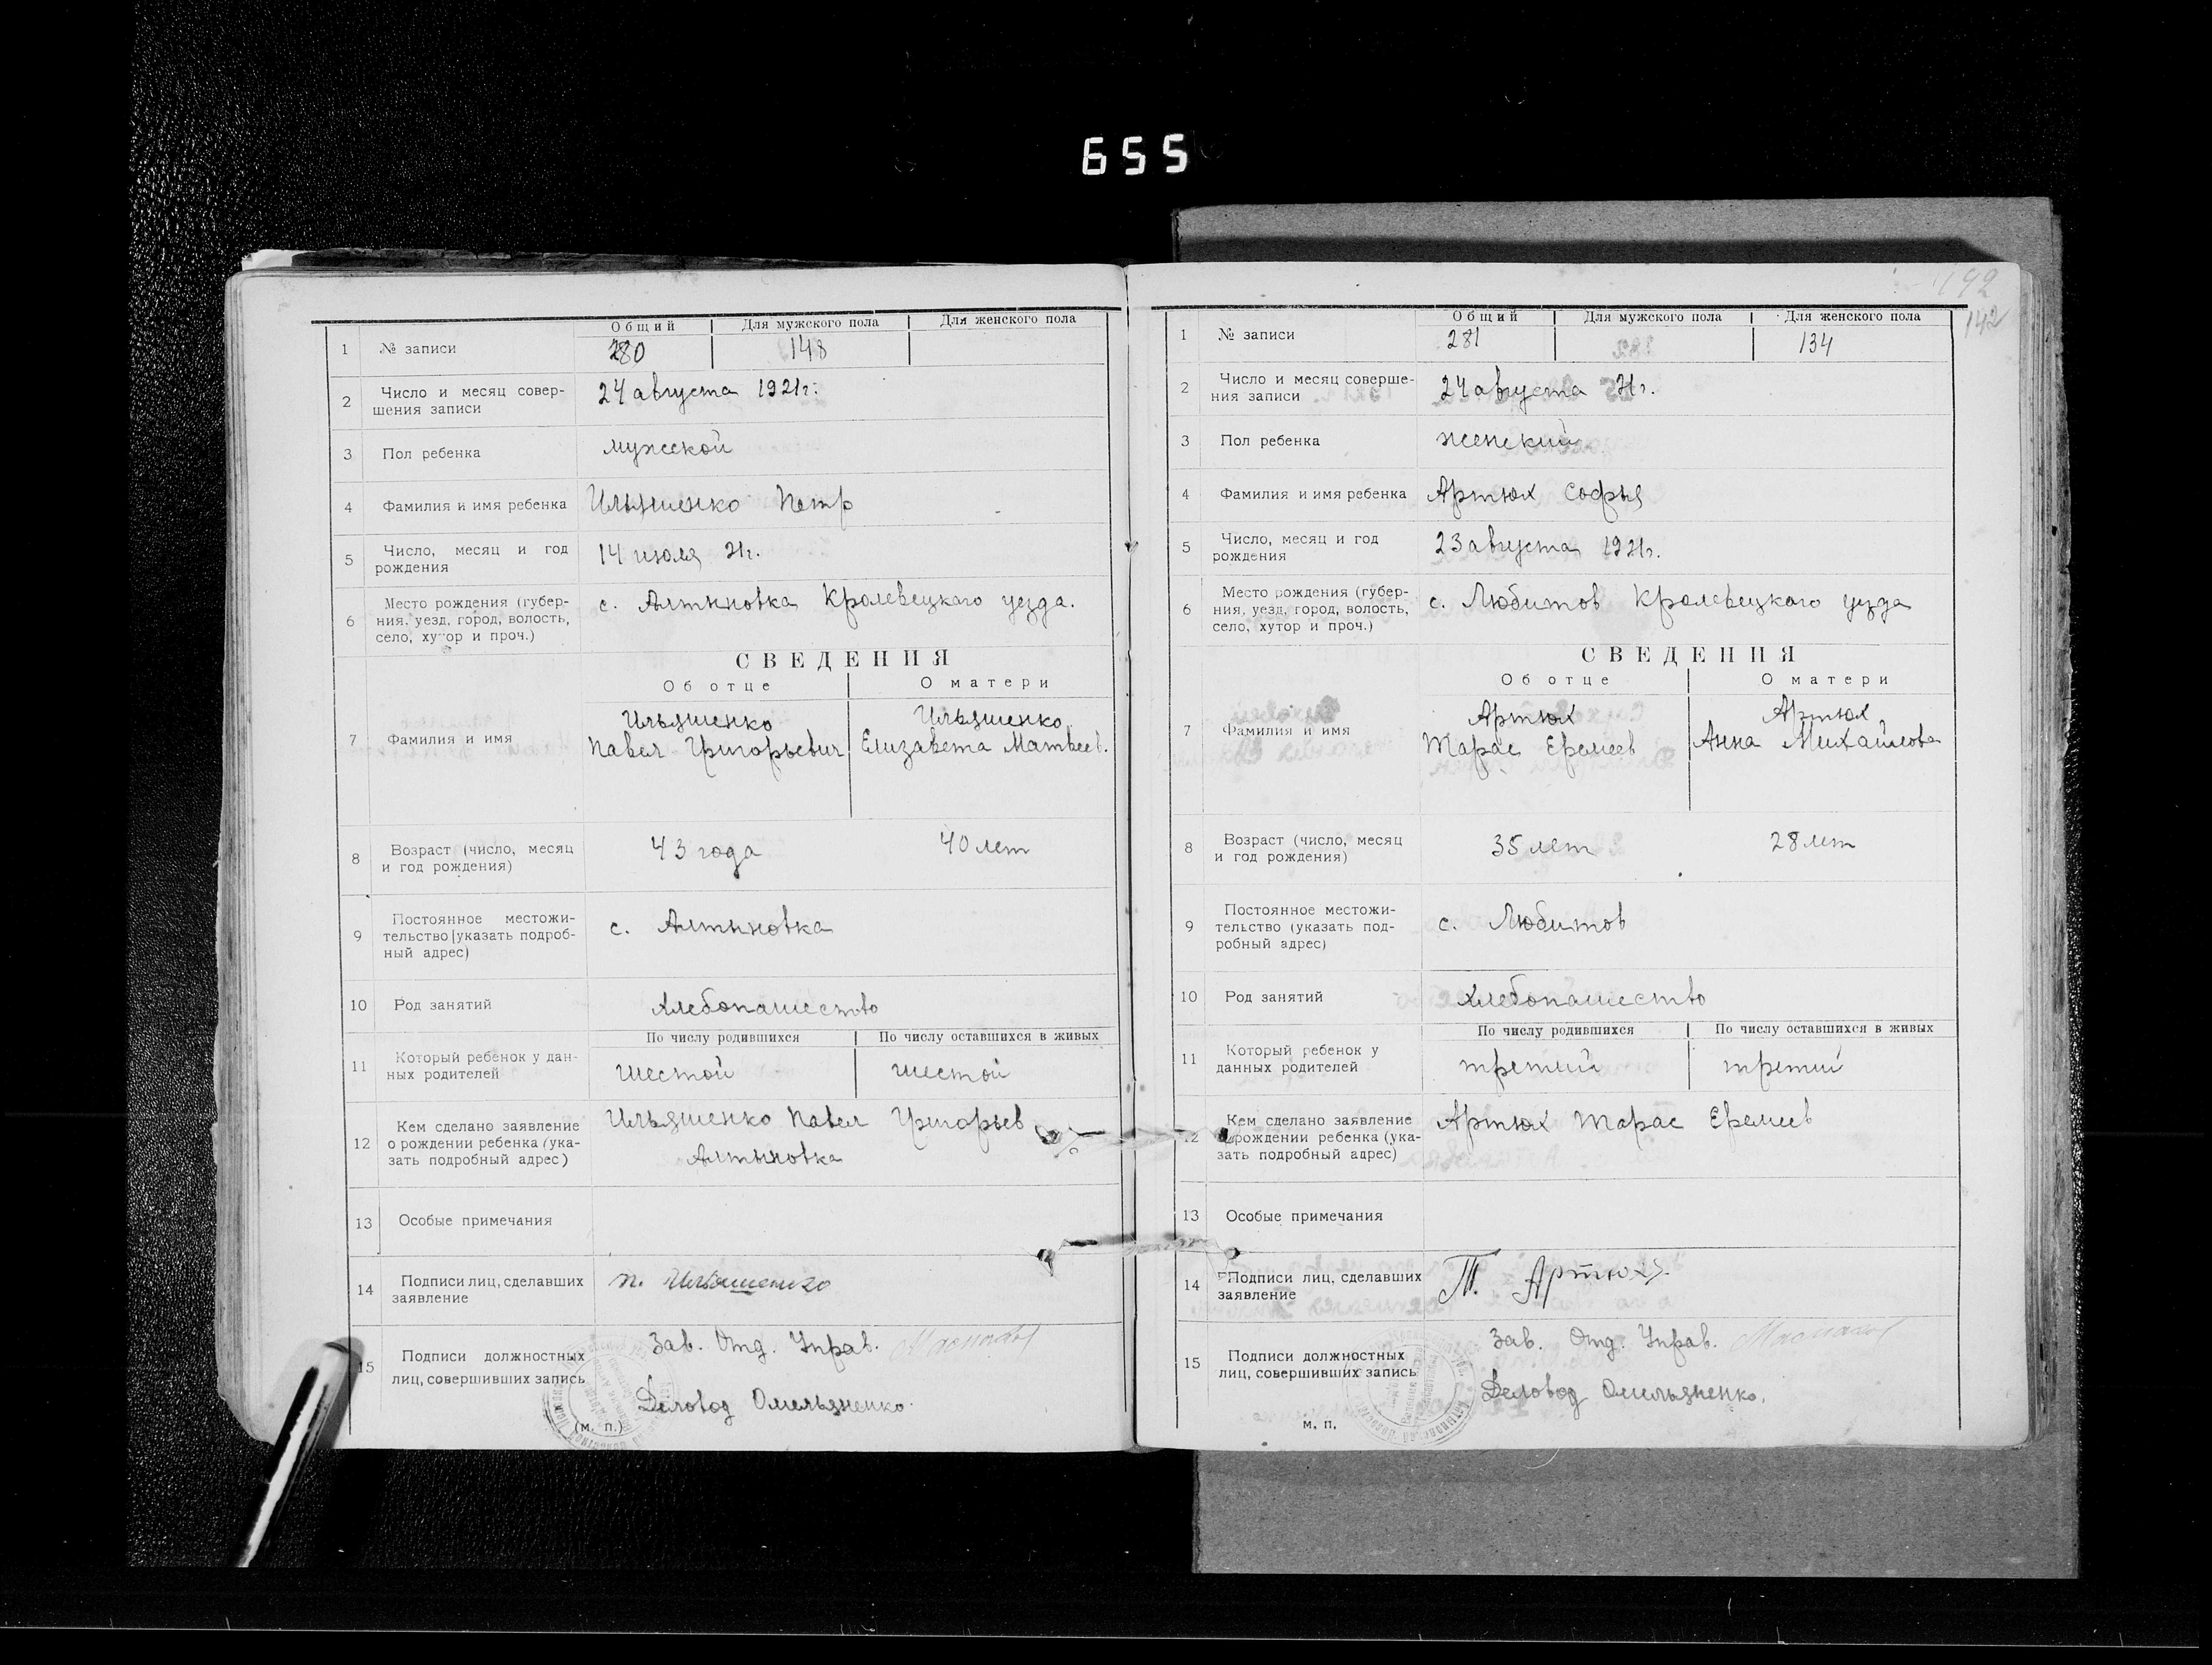 655
Общий Для мужского пола Для женского пола
1 № записи 280 148
2 Число и месяц совер-
шения записи 24 августа 1921г.
3 Пол ребенка мужской
4 Фамилия и имя ребенка Ильяшенко Петр
5 Число, месяц и год
рождения 14 июля 21г.
6 Место рождения (губер-
ния, уезд, город, волость,
село, хутор и проч.) с. Алтыновка Кролевецкого уезда.
СВЕДЕНИЯ
Об отце О матери
7 Фамилия и имя
Ильяшенко Ильяшенко
Павел Григорьевич Елизавета Матвеев.
8 Возраст (число, месяц
и год рождения) 43 года 40 лет
9 Постоянное местожи-
тельство (указать подроб-
ный адрес) с. Алтыновка
10 Род занятий хлебопашество
По числу родившихся По числу оставшихся в живых
11 Который ребенок у дан-
ных родителей шестой шестой
12 Кем сделано заявление
о рождении ребенка (ука-
зать подробный адрес)
Ильяшенко Павел Григорьев
Алтыновка
13 Особые примечания
14 Подписи лиц, сделавших
заявление п. Ильяшенко
15 Подписи должностных
лиц, совершивших запись
Зав. Отд. Управ.
Діловод Омельяненко.
(м. п.)
142
Общий Для мужского пола Для женского пола
1 № записи 281 134
2 Число и месяц соверше-
ния записи 24 августа 21г.
3 Пол ребенка женский
4 Фамилия и имя ребенка Артюх Софья
5 Число, месяц и год
рождения 23 августа 1921г.
6 Место рождения (губер-
ния, уезд, город, волость,
село, хутор и проч.) с. Любитов Кролевецкого уезда
СВЕДЕНИЯ
Об отце О матери
7 Фамилия и имя
Артюх Артюх
Тарас Еремеев Анна Михайлова
8 Возраст (число, месяц
и год рождения) 35 лет 28 лет
9 Постоянное местожи-
тельство (указать под-
робный адрес) с. Любитов
10 Род занятий хлебопашество
По числу родившихся По числу оставшихся в живых
11 Который ребенок у
данных родителей третий третий
12 Кем сделано заявление
о рождении ребенка (ука-
зать подробный адрес)
Артюх Тарас Еремеев
13 Особые примечания
14 Подписи лиц, сделавших
заявление Т. Артюх
15 Подписи должностных
лиц, совершивших запись
Зав. Отд. Управ.
Деловод Омельяненко.
м. п.